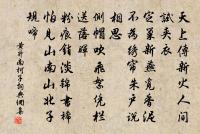 天上傳新火人間
試夾衣
定巢新燕覓香泥
不為綉帘朱戶說
相思
側帽吹飛絮憑栏
送落暉
粉痕銷淡錦書稀
怕見山南山北子
規啼
黃升南柯子詞典網